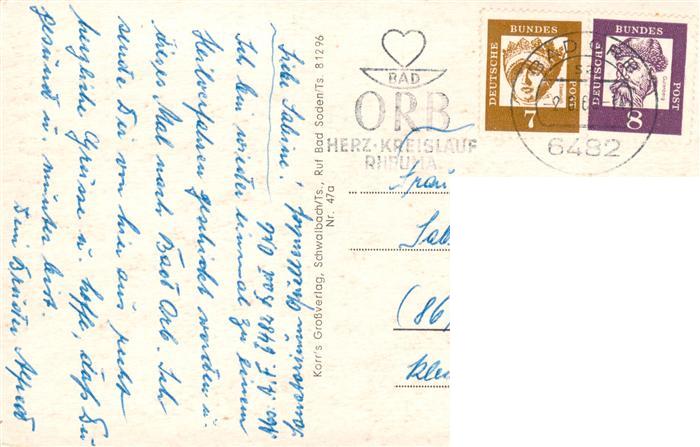 Liebe Sabine!
Ich bin wieder einmal zu einem
Heilverfahren geschickt worden u.
dieses Mal nach Bad Orb. Ich
sende Dir von hier aus recht
herzliche Grüsse u. hoffe, daß Du
gesund u. munter bist.
Dein Bruder Alfred
6482 Bad Orb
Korr's Großverlag, Schwalbach/Ts., Ruf Bad Soden/Ts. 81296
Nr. 47a
BAD
ORB
HERZ-KREISLAUF
RHEUMA
DEUTSCHE BUNDESPOST
7
DEUTSCHE BUNDESPOST
Gutenberg
8
BAD ORB
6482
Frau
Sab
(86)